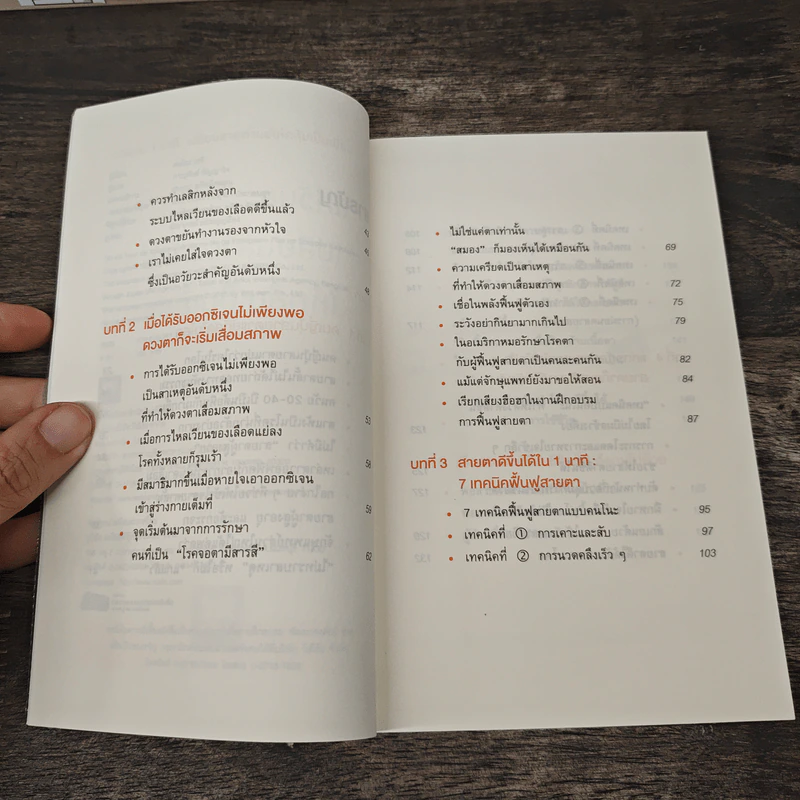 • ควรทำเลสิกหลังจาก
ระบบไหลเวียนของเลือดดีขึ้นแล้ว 43
• ดวงตาขยันทำงานรองจากหัวใจ 45
• เราไม่เคยใส่ใจดวงตา
ซึ่งเป็นอวัยวะสำคัญอันดับหนึ่ง 48
บทที่ 2 เมื่อได้รับออกซิเจนไม่เพียงพอ
ดวงตาก็จะเริ่มเสื่อมสภาพ
• การได้รับออกซิเจนไม่เพียงพอ
เป็นสาเหตุอันดับหนึ่ง
ที่ทำให้ดวงตาเสื่อมสภาพ 53
• เมื่อการไหลเวียนของเลือดแย่ลง
โรคทั้งหลายก็รุมเร้า 56
• มีสมาธิมากขึ้นเมื่อหายใจเอาออกซิเจน
เข้าสู่ร่างกายเต็มที่ 59
• จุดเริ่มต้นมาจากการรักษา
คนที่เป็น “โรคจอตามีสารสี” 62
• ไม่ใช่แค่ตาเท่านั้น
“สมอง” ก็มองเห็นได้เหมือนกัน 69
• ความเครียดเป็นสาเหตุ
ที่ทำให้ดวงตาเสื่อมสภาพ 72
• เชื่อในพลังฟื้นฟูตัวเอง 75
• ระวังอย่ากินยามากเกินไป 79
• ในอเมริกาหมอรักษาโรคตา
กับผู้ฟื้นฟูสายตาเป็นคนละคนกัน 82
• แม้แต่จักษุแพทย์ยังมาขอให้สอน 84
• เรียกเสียงฮือฮาในงานฝึกอบรม
การฟื้นฟูสายตา 87
บทที่ 3 สายตาดีขึ้นได้ใน 1 นาที :
7 เทคนิคฟื้นฟูสายตา
• 7 เทคนิคฟื้นฟูสายตาแบบคนโนะ 95
• เทคนิคที่ ① การเคาะและสับ 97
• เทคนิคที่ ② การนวดคลึงเร็ว ๆ 103